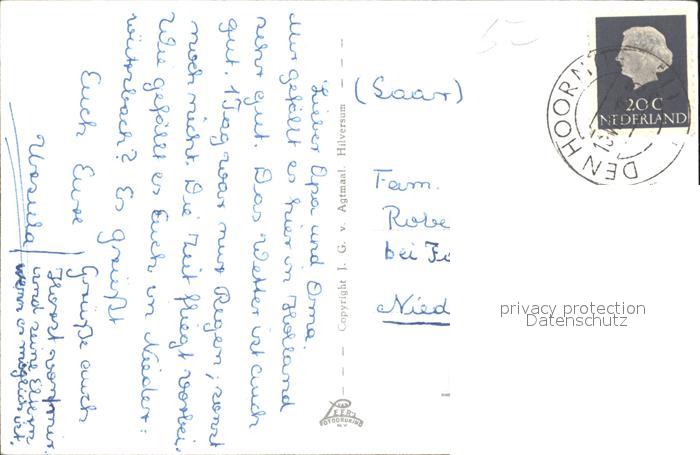 Lieber Opa und Oma.
Mir gefällt es hier in Holland
sehr gut. Das Wetter ist auch
gut. 1 Tag war nur Regen, sonst
noch nicht. Die Zeit fliegt vorbei.
Wie gefällt es Euch in Nieder-
würzbach? Es grüßt
Euch Eure
Ursula
Grüße auch
Horst von mir
und seine Eltern
wenn es möglich ist.
Copyright J. G. v. Agtmaal. Hilversum
LEER'S
FOTODRUKIND
N.V.
(Saar)
Fam.
Robe
bei Fa
Nied
20C
NEDERLAND
DEN HOORN
privacy protection
Datenschutz